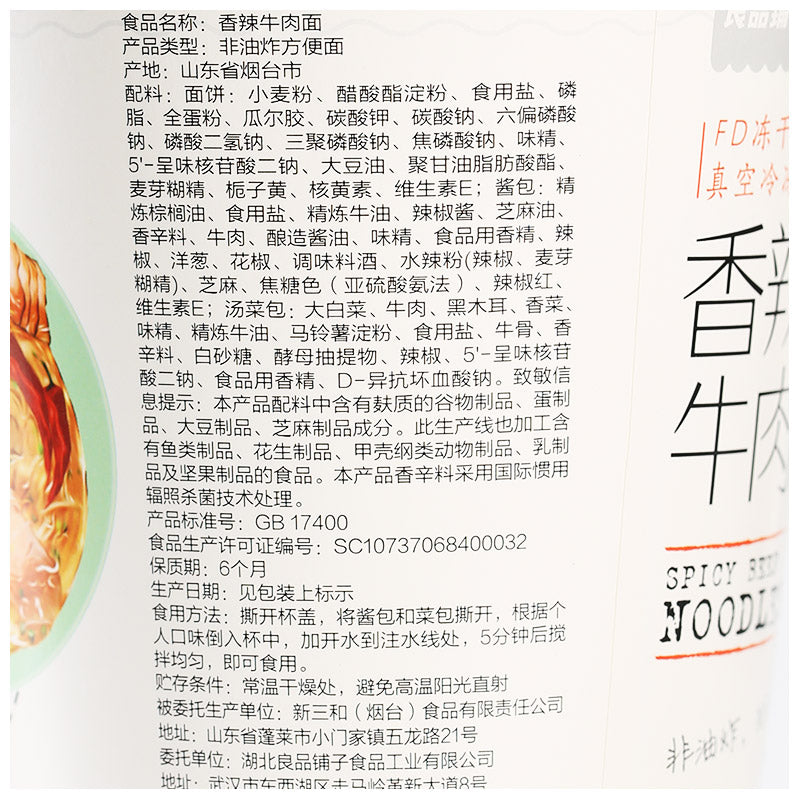 食品名称：香辣牛肉面
产品类型：非油炸方便面
产地：山东省烟台市
配料：面饼：小麦粉、醋酸酯淀粉、食用盐、磷
脂、全蛋粉、瓜尔胶、碳酸钾、碳酸钠、六偏磷酸
钠、磷酸二氢钠、三聚磷酸钠、焦磷酸钠、味精、
5'-呈味核苷酸二钠、大豆油、聚甘油脂肪酸酯、
麦芽糊精、栀子黄、核黄素、维生素E；酱包：精
炼棕榈油、食用盐、精炼牛油、辣椒酱、芝麻油、
香辛料、牛肉、酿造酱油、味精、食品用香精、辣
椒、洋葱、花椒、调味料酒、水辣粉(辣椒、麦芽
糊精)、芝麻、焦糖色（亚硫酸氨法）、辣椒红、
维生素E；汤菜包：大白菜、牛肉、黑木耳、香菜、
味精、精炼牛油、马铃薯淀粉、食用盐、牛骨、香
辛料、白砂糖、酵母抽提物、辣椒、5'-呈味核苷
酸二钠、食品用香精、D-异抗坏血酸钠。致敏信
息提示：本产品配料中含有麸质的谷物制品、蛋制
品、大豆制品、芝麻制品成分。此生产线也加工含
有鱼类制品、花生制品、甲壳纲类动物制品、乳制
品及坚果制品的食品。本产品香辛料采用国际惯用
辐照杀菌技术处理。
产品标准号：GB 17400
食品生产许可证编号：SC10737068400032
保质期：6个月
生产日期：见包装上标示
食用方法：撕开杯盖，将酱包和菜包撕开，根据个
人口味倒入杯中，加开水到注水线处，5分钟后搅
拌均匀，即可食用。
贮存条件：常温干燥处，避免高温阳光直射
被委托生产单位：新三和（烟台）食品有限责任公司
地址：山东省蓬莱市小门家镇五龙路21号
委托单位：湖北良品铺子食品工业有限公司
地址：武汉市东西湖区走马岭革新大道8号
良品铺
FD冻干
真空冷冻
香辣
牛肉
SPICY BEEF
NOODLE
非油炸，